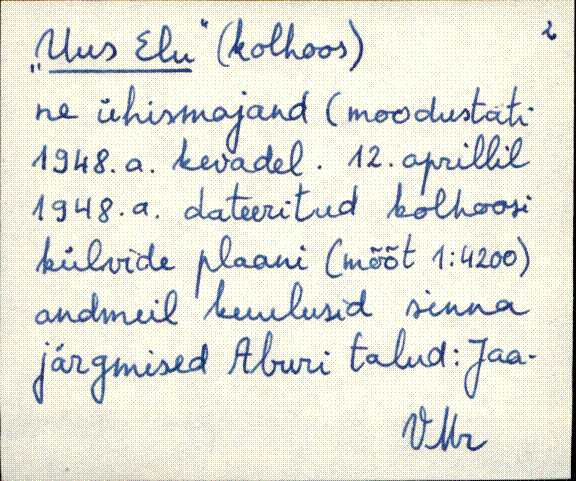 2
„Uus Elu" (kolhoos)
ne ühismajand (moodustati
1948.a. kevadel. 12. aprillil
1948.a. dateeritud kolhoosi
külvide plaani (mõõt 1:4200)
andmeil kuulusid sinna
järgmised Aburi talud: Jaa-
VMr